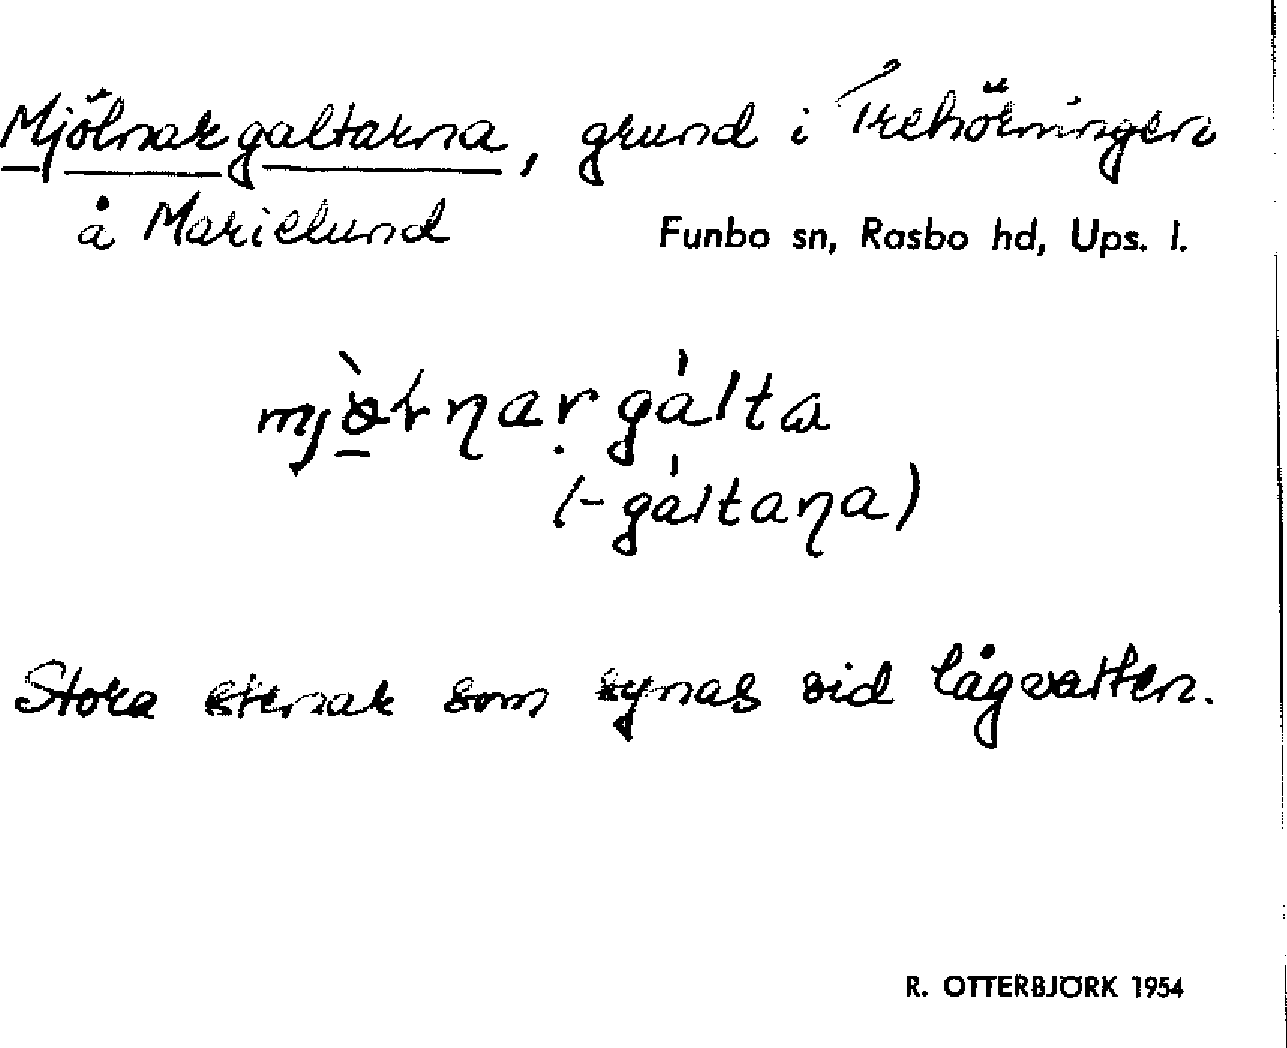 Mjölnargaltarna, grund i Trehörningen
å Marielund
Funbo sn, Rasbo hd, Ups. l.
(-gáltaṇa)
Stora stenar som synas vid lågvatten.
R. OTTERBJÖRK 1954